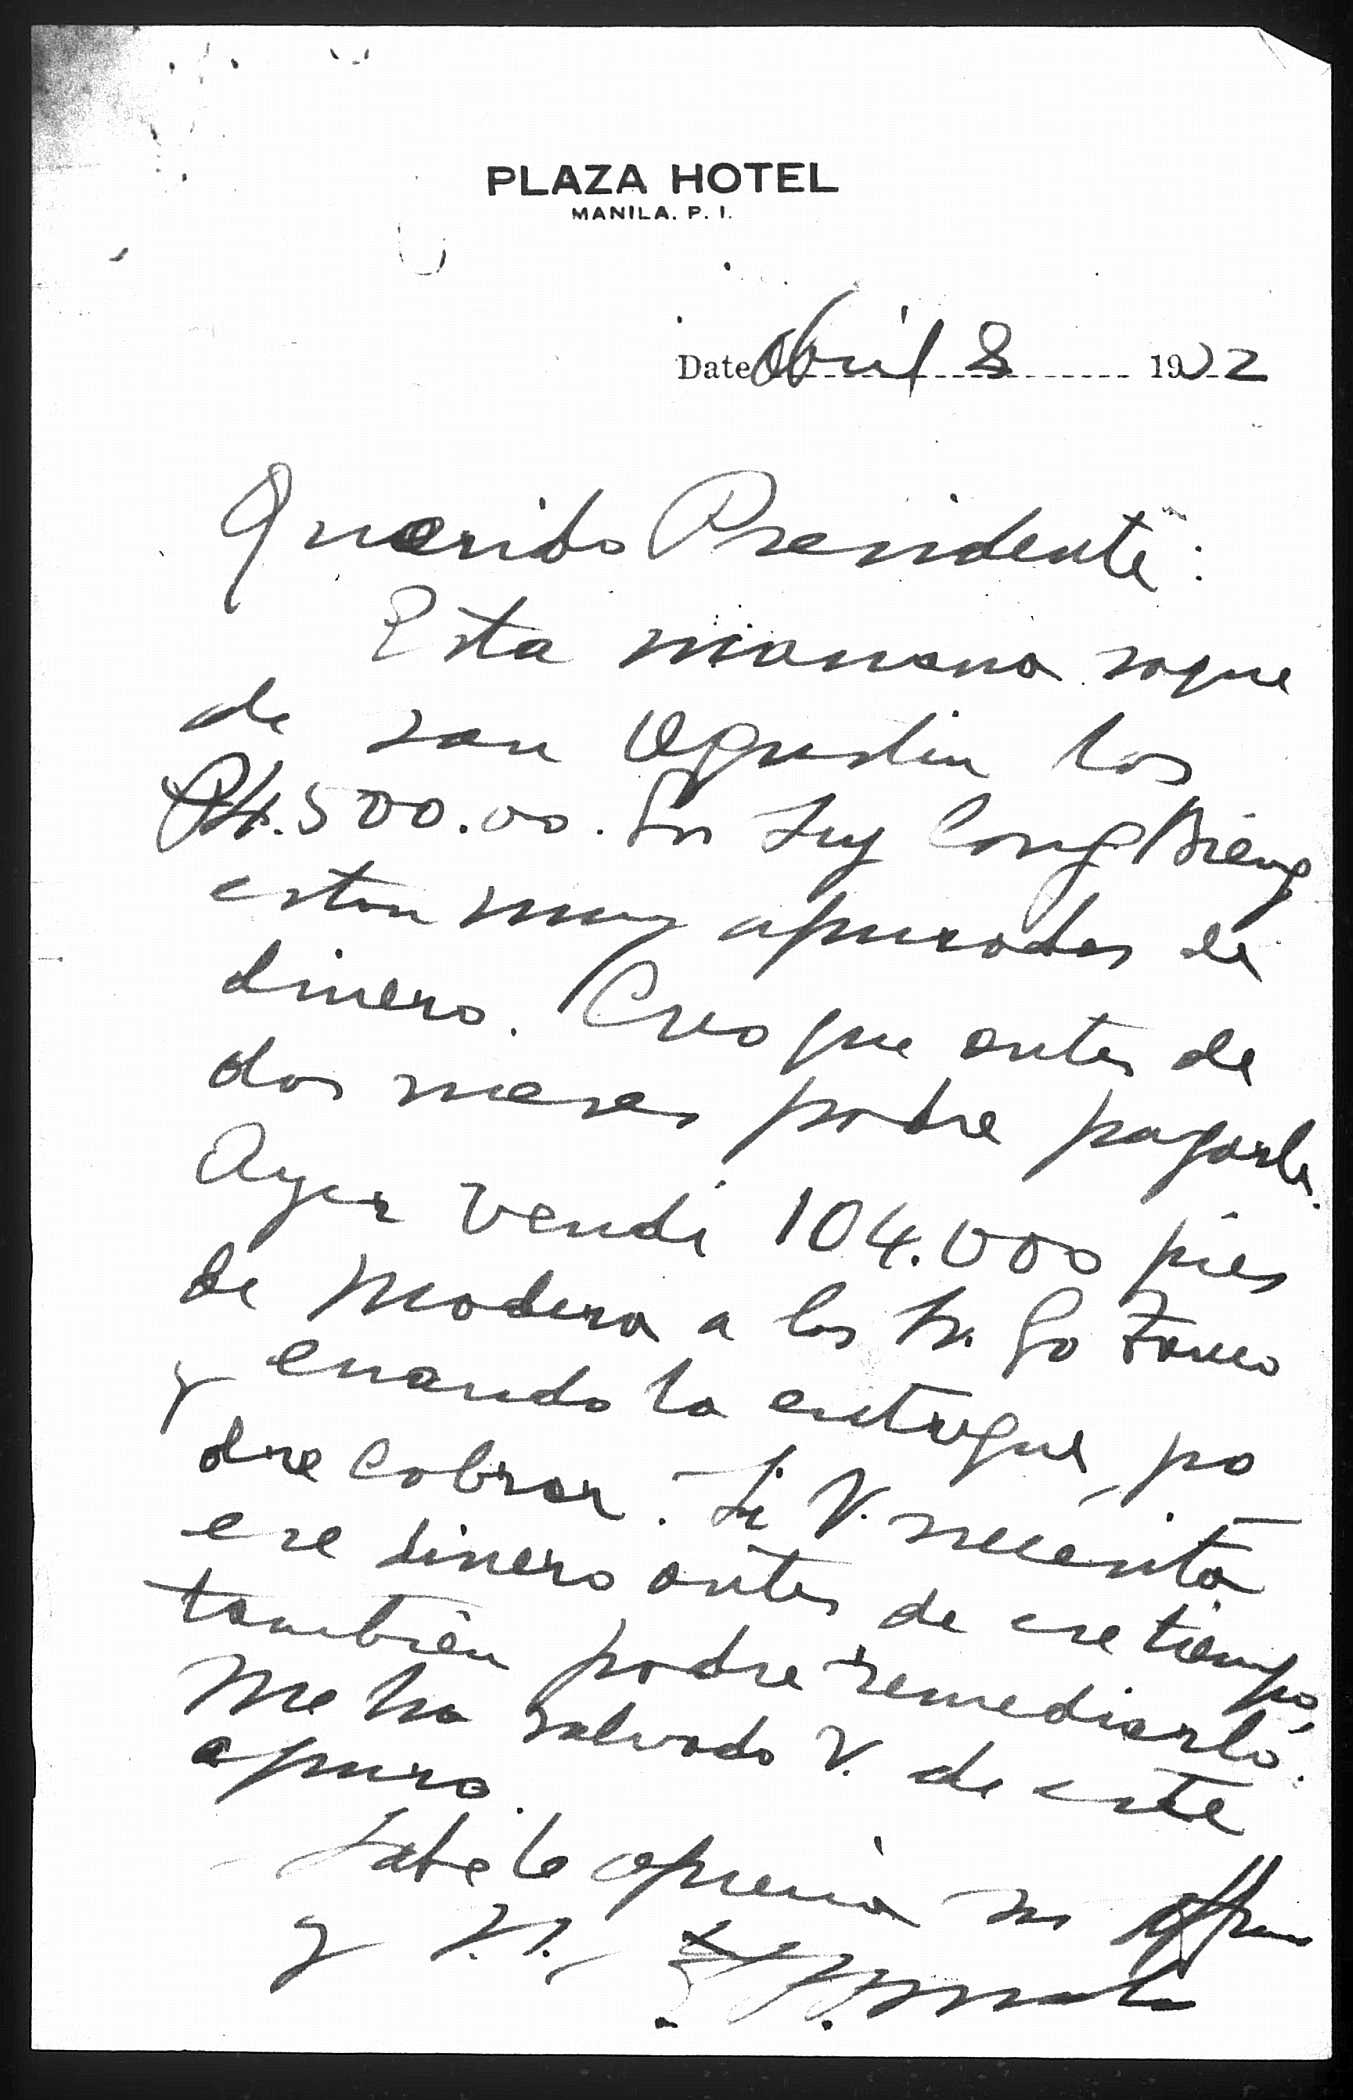 PLAZA HOTEL
MANILA. P. I.
Date Abril 8 1922
Querido Presidente:
Esta manana saque
de san Agustin los
₱4.500.00. En Suy Cong Bieng
estan muy apurados de
dinero. Creo que antes de
dos meses podre pagarla.
Ayer vendi 104.000 pies
de madera a los Sr. Go Fauco
y cuando la entregue, po
dre cobrar. Si V. necesita
ese dinero antes de ese tiempo,
tambien podre remediarlo.
Me ha salvado V. de este
apuro.
Sabe le aprecia su affmo
y S.S.,